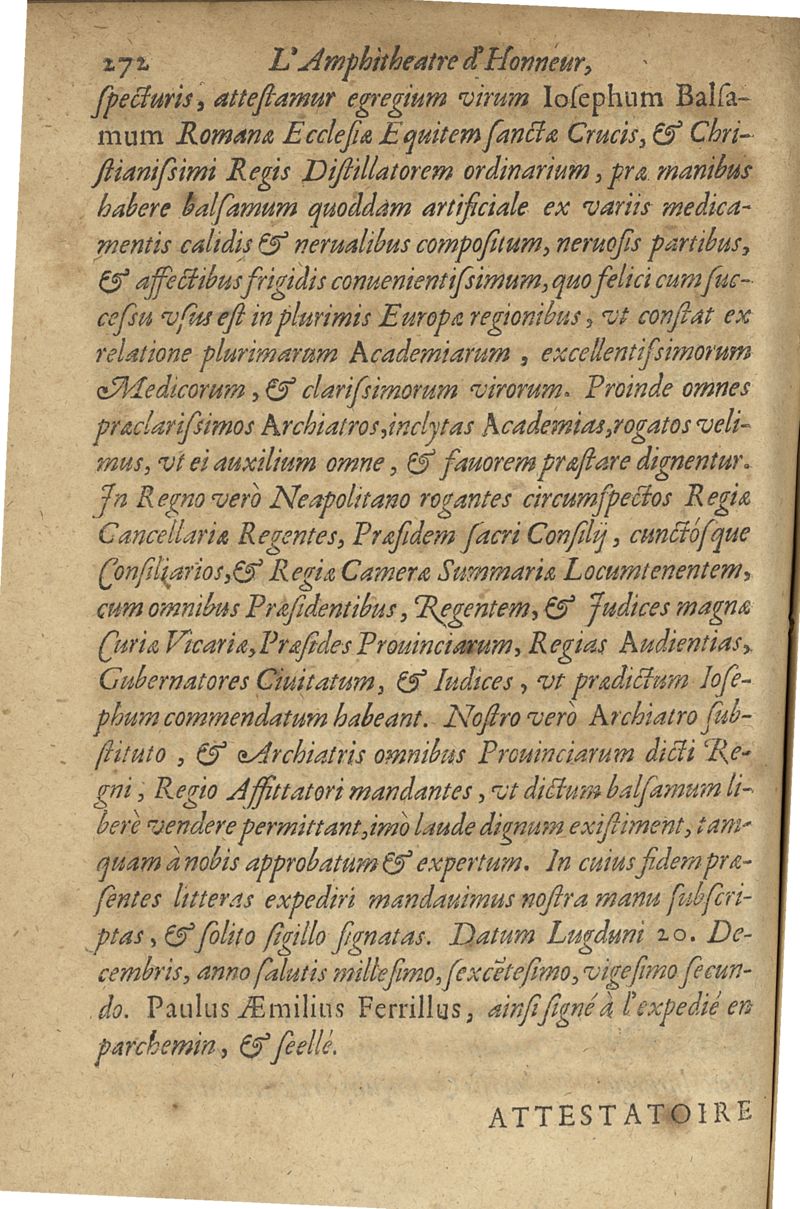 272 L'Amphitheatre d'Honneur,
ſpecturis, atteſtamur egregium virum Ioſephum Balſa-
mum Romanæ Eccleſiæ Equitem ſanctæ Crucis, & Chri-
ſtianiſsimi Regis Diſtillatorem ordinarium, præ manibus
habere balſamum quoddam artificiale ex variis medica-
mentis calidis & nerualibus compoſitum, neruoſis partibus,
& affectibus frigidis conuenientiſsimum, quo felici cum ſuc-
ceſsu vſus eſt in plurimis Europæ regionibus, vt conſtat ex
relatione plurimarum Academiarum, excellentiſsimorum
Medicorum, & clariſsimorum virorum. Proinde omnes
præclariſsimos Archiatros, inclytas Academias, rogatos veli-
mus, vt ei auxilium omne, & fauorem præſtare dignentur.
In Regno verò Neapolitano rogantes circumſpectos Regiæ
Cancellariæ Regentes, Præſidem ſacri Conſilij, cunctóſque
Conſiliarios, & Regiæ Cameræ Summariæ Locumtenentem,
cum omnibus Præſidentibus, Regentem, & Judices magnæ
Curiæ Vicariæ, Præſides Prouinciarum, Regias Audientias,
Gubernatores Ciuitatum, & Iudices, vt prædictum Ioſe-
phum commendatum habeant. Noſtro verò Archiatro ſub-
ſtituto, & Archiatris omnibus Prouinciarum dicti Re-
gni, Regio Affittatori mandantes, vt dictum balſamum li-
berè vendere permittant, imò laude dignum exiſtiment, tam-
quam à nobis approbatum & expertum. In cuius fidem præ-
ſentes litteras expediri mandauimus noſtra manu ſubſcri-
ptas, & ſolito ſigillo ſignatas. Datum Lugduni 20. De-
cembris, anno ſalutis milleſimo, ſexcẽteſimo, vigeſimo ſecun-
do. Paulus Æmilius Ferrillus, ainſi ſigné à l'expedié en
parchemin, & ſeellé.
ATTESTATOIRE